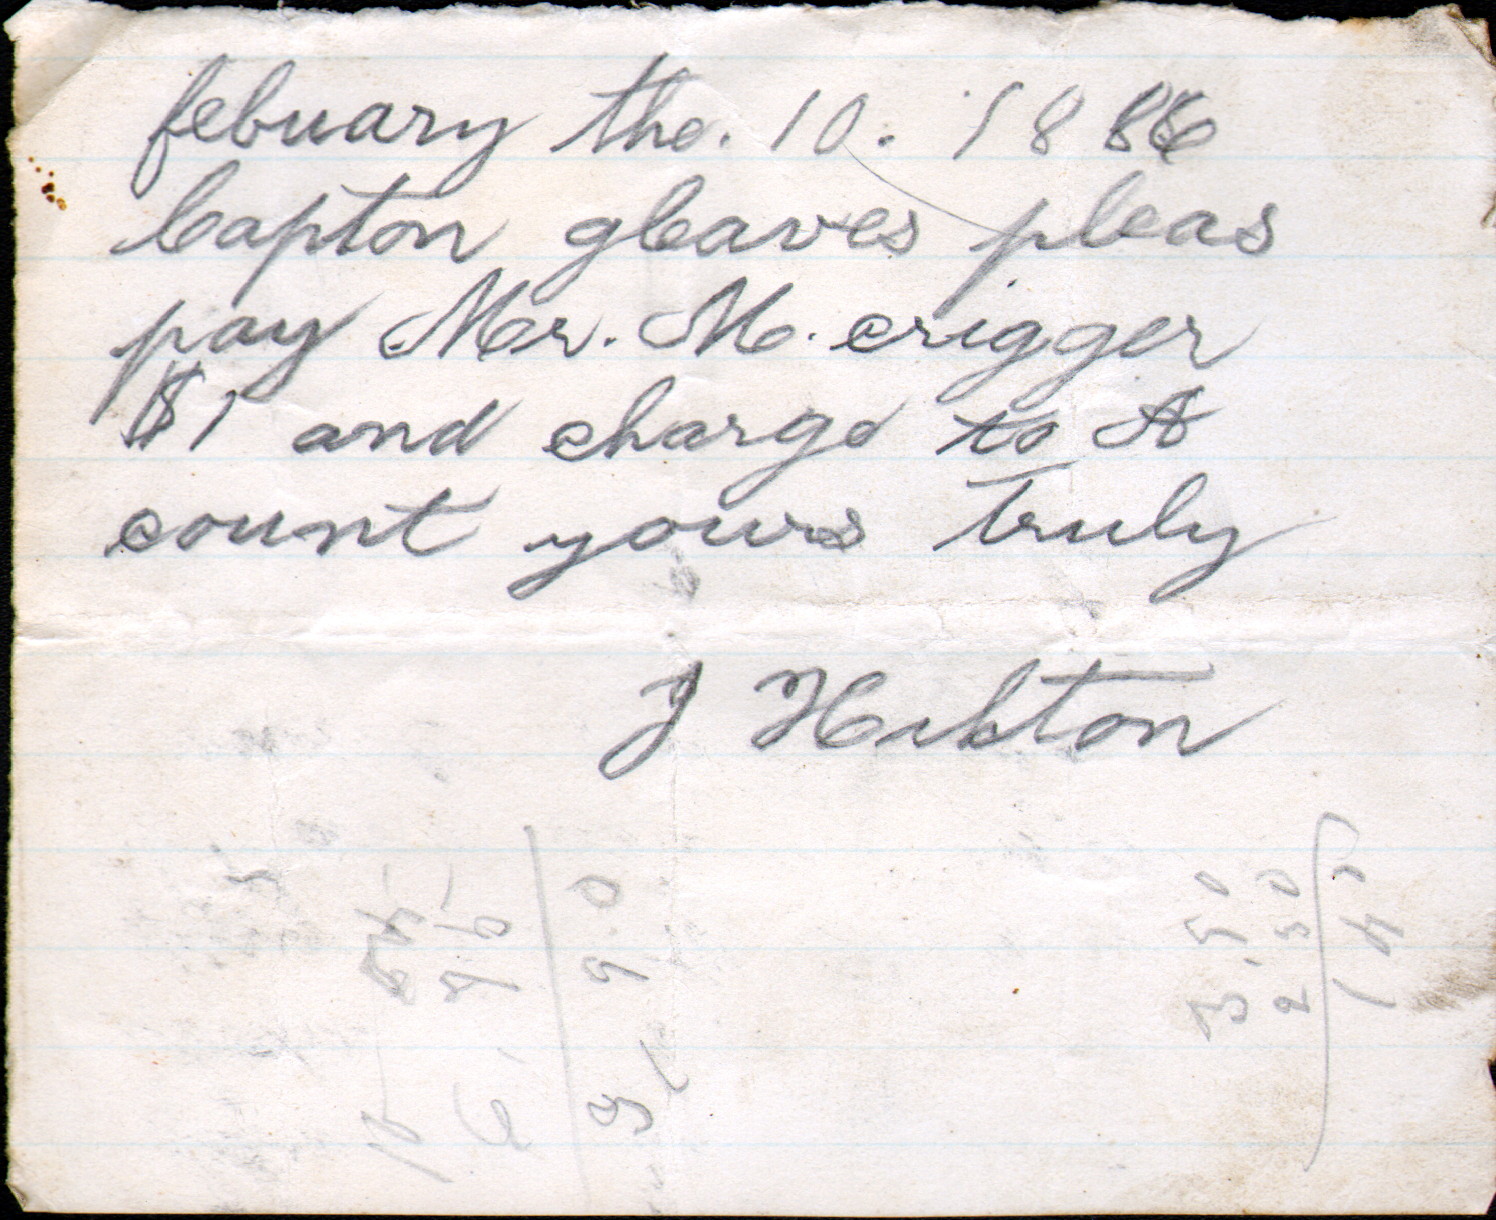 febuary the. 10. 1886
Capton gleaves pleas
pay Mr. M. crigger
$1 and charge to A
count yours Truly
J
3.50
2 50